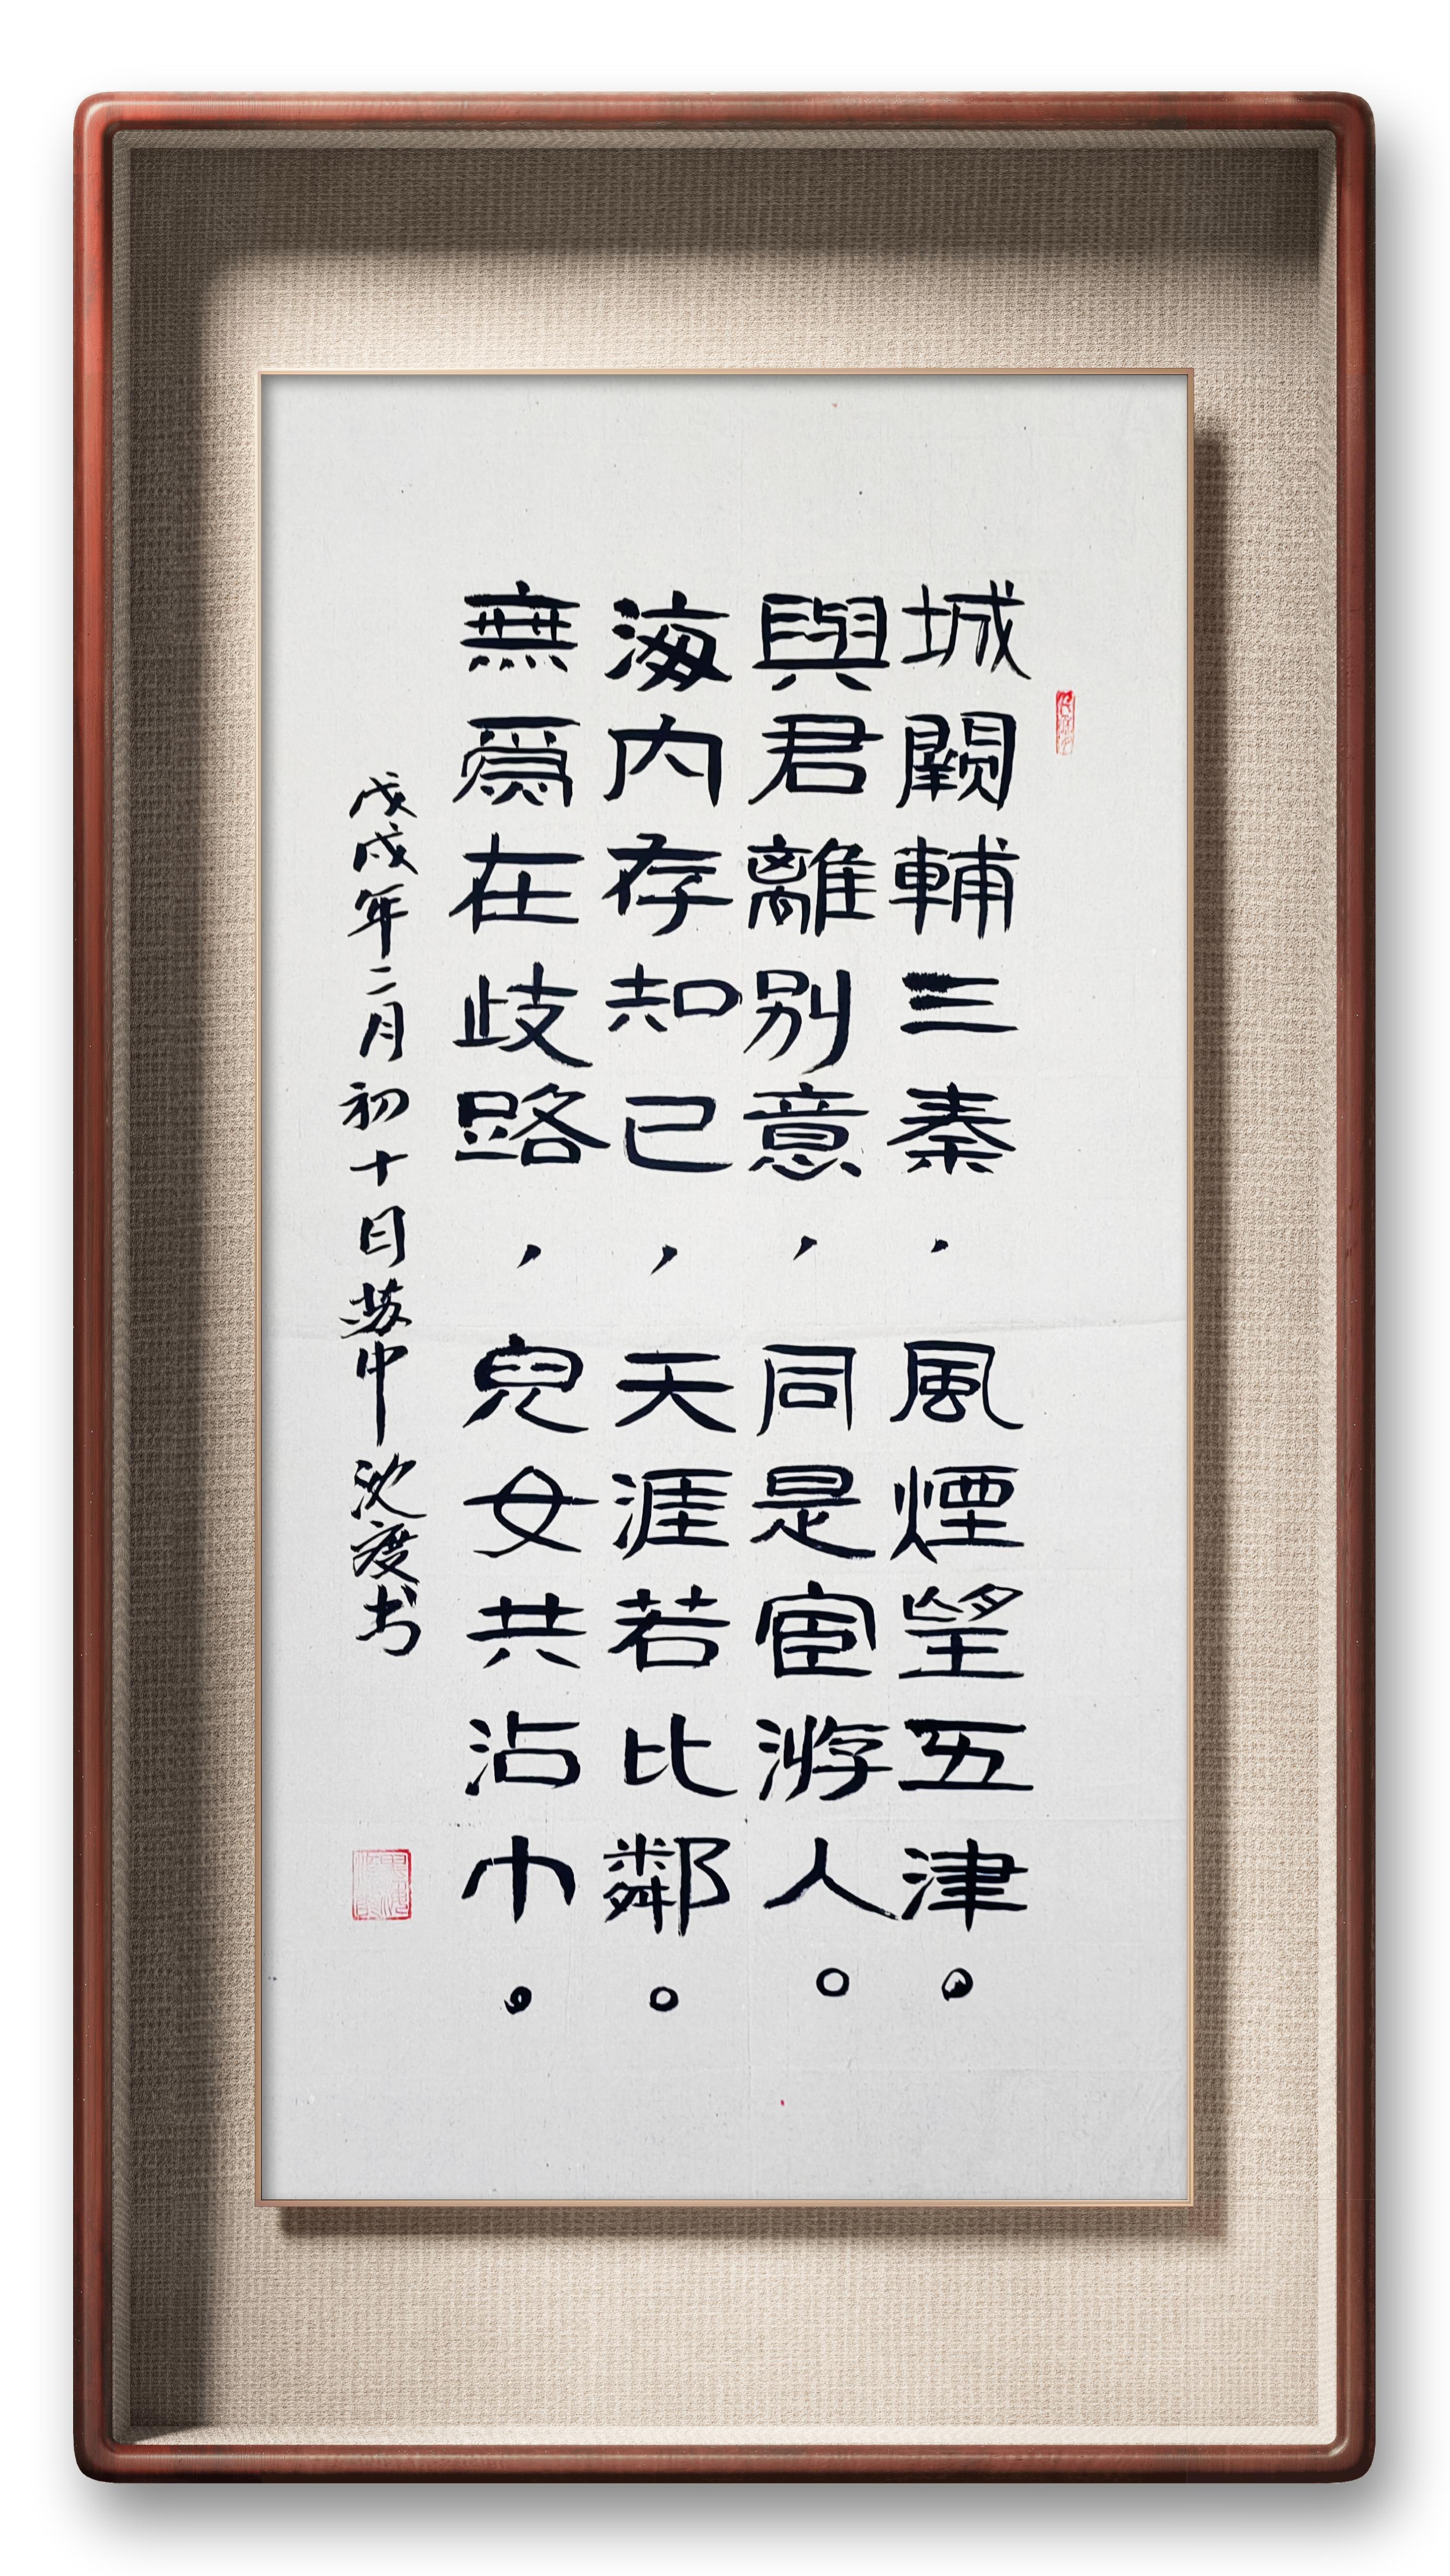 城闕輔三秦，風煙望五津。
與君離别意，同是宦游人。
海内存知己，天涯若比鄰。
無爲在歧路，兒女共沾巾。
戊戌年二月初十日苏中沈度书